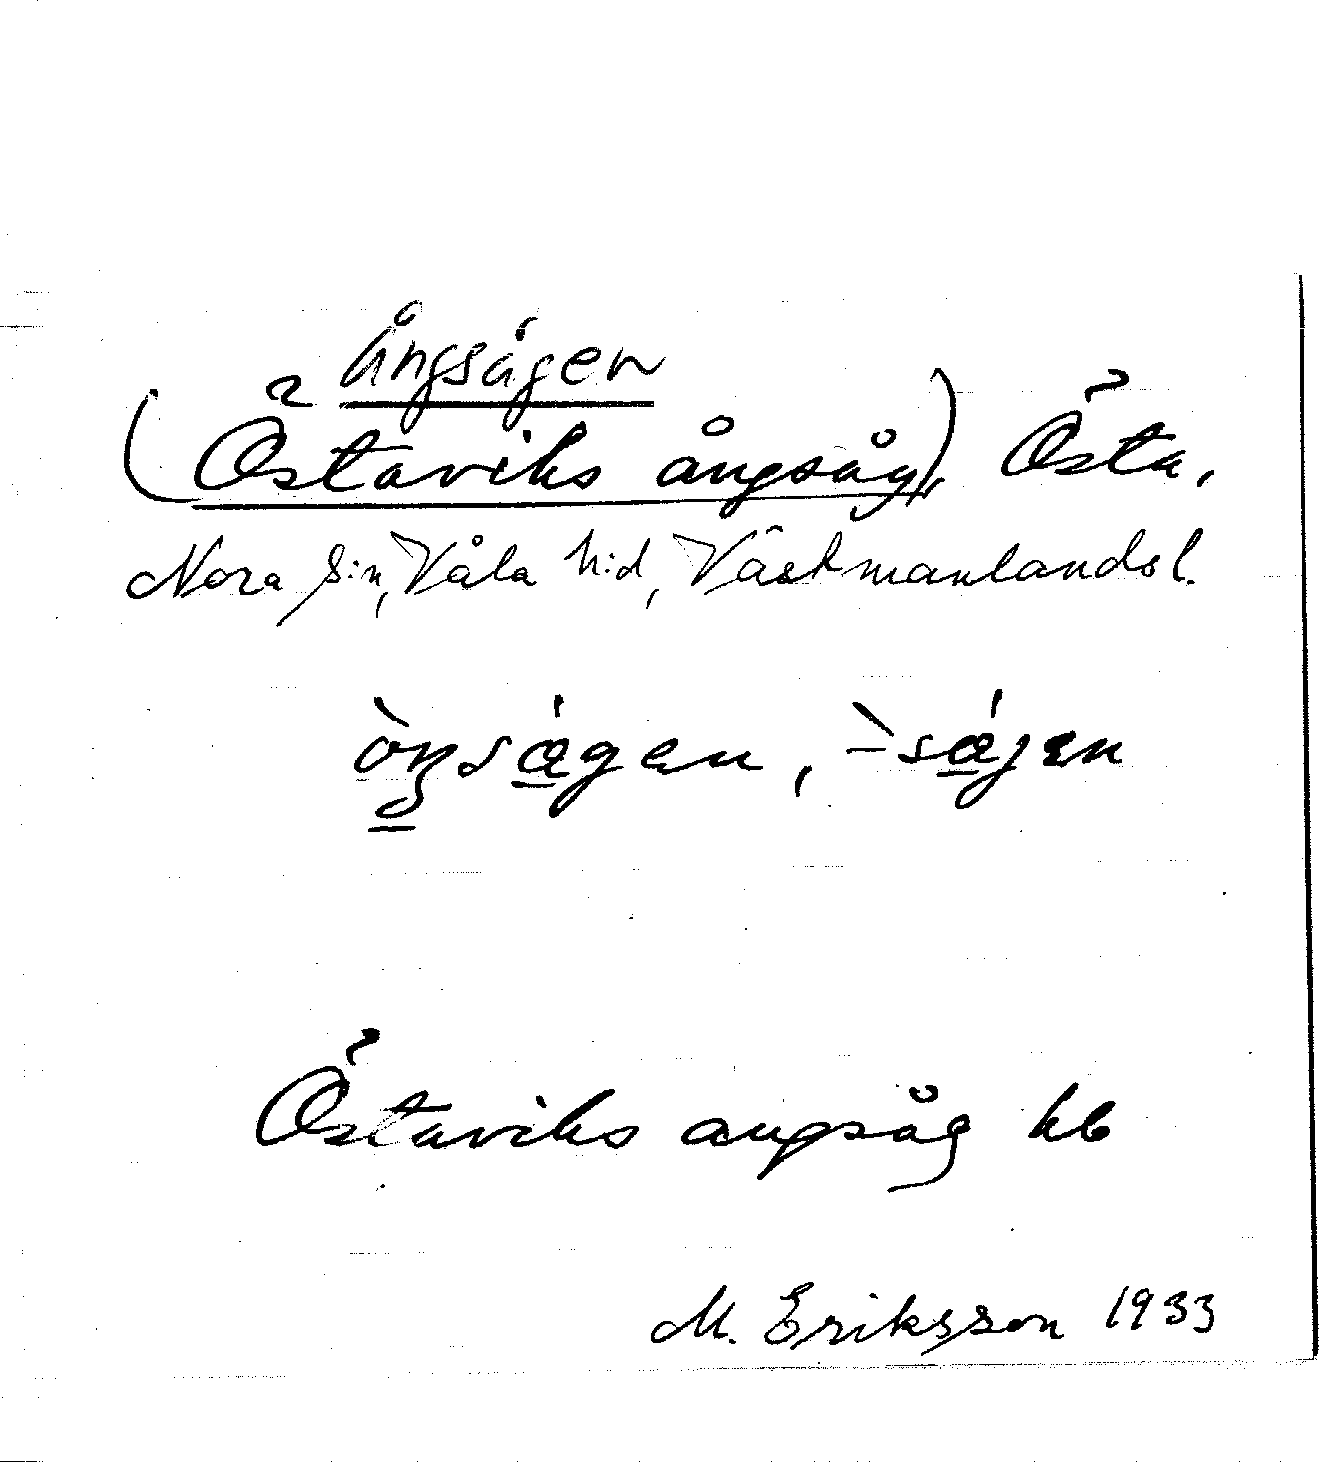 Ångsågen
(Östaviks ångsåg), Östa,
Nora s:n, Våla h:d, Västmanlands l.
òŋsǽgen, -̀sǽjen
Östaviks angsåg hb
M. Eriksson 1933